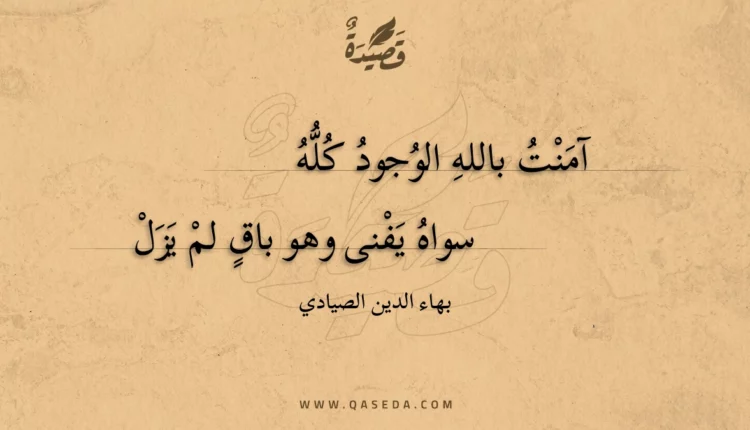 قَصِيدَةٌ
آمَنْتُ باللهِ الوُجودُ كُلُّهُ
سواهُ يَفْنى وهو باقٍ لمْ يَزَلْ
بهاء الدين الصيادي
WWW.QASEDA.COM